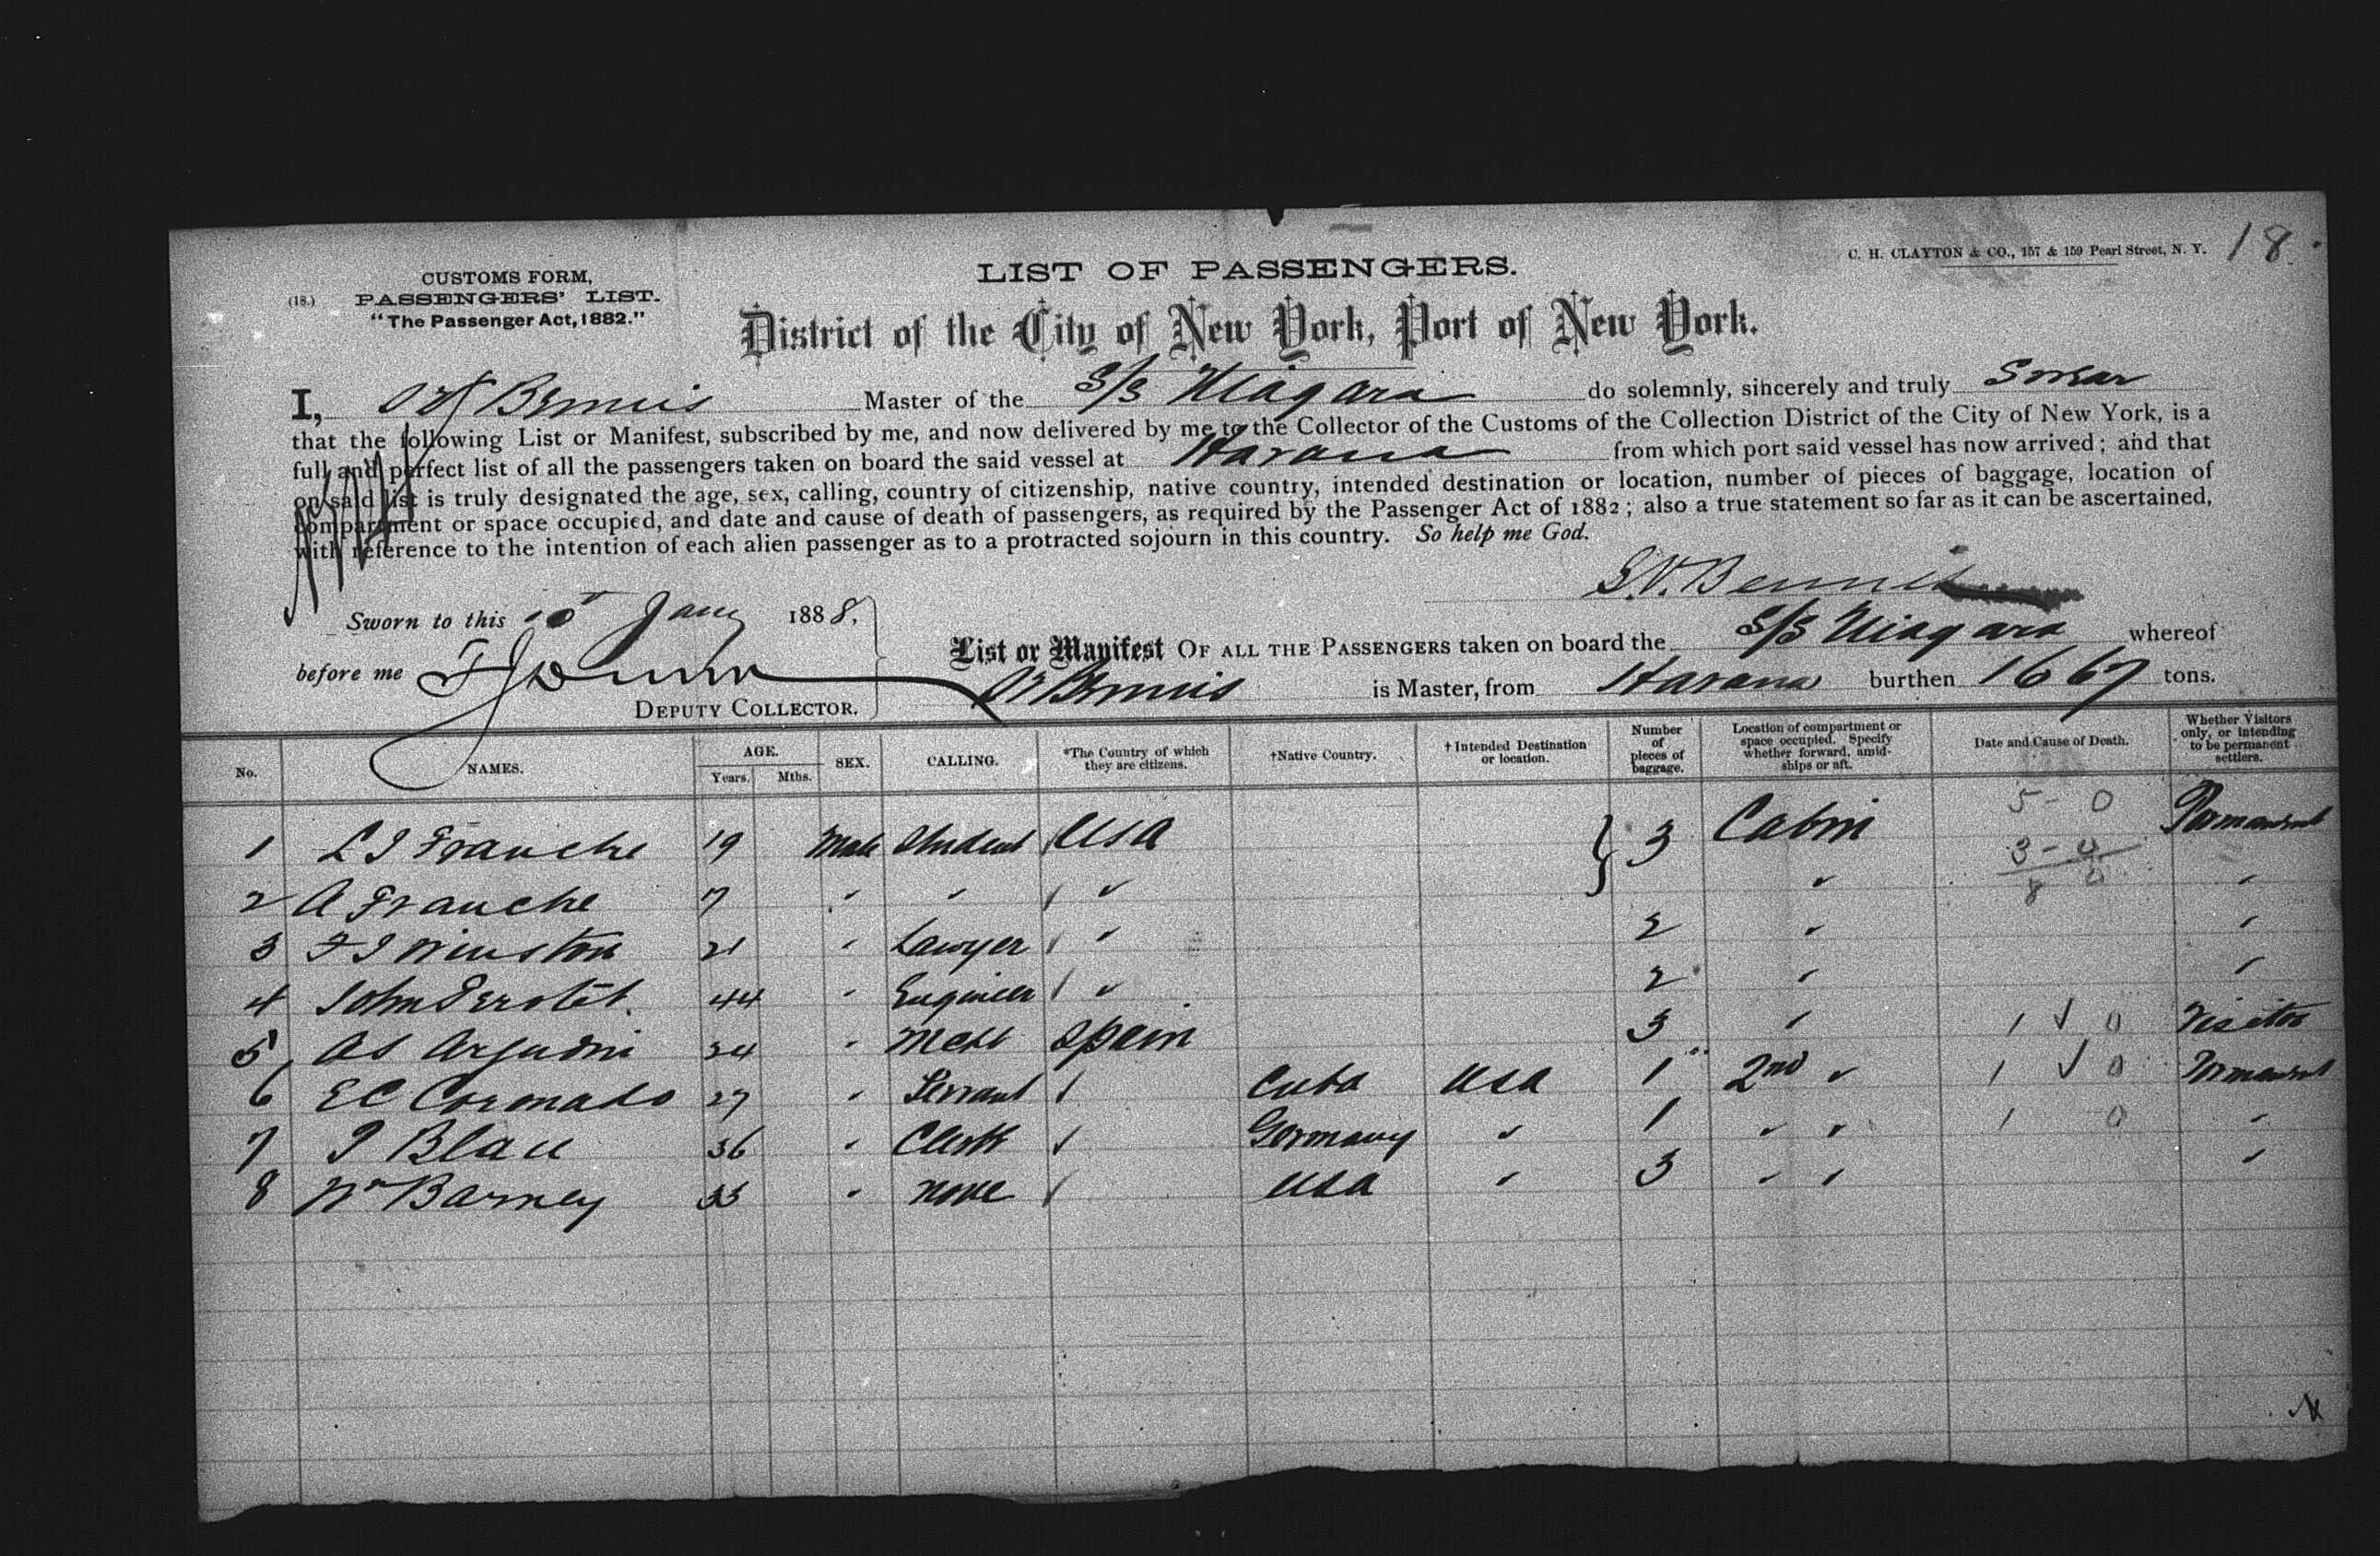 18.
C. H. CLAYTON & CO., 157 & 159 Pearl Street, N. Y.
CUSTOMS FORM,
(18.) PASSENGERS' LIST.
"The Passenger Act, 1882."
LIST OF PASSENGERS.
District of the City of New York, Port of New York.
I, Bennis Master of the S/S Niagara do solemnly, sincerely and truly Swear
that the following List or Manifest, subscribed by me, and now delivered by me to the Collector of the Customs of the Collection District of the City of New York, is a
full and perfect list of all the passengers taken on board the said vessel at Havana from which port said vessel has now arrived; and that
on said list is truly designated the age, sex, calling, country of citizenship, native country, intended destination or location, number of pieces of baggage, location of
compartment or space occupied, and date and cause of death of passengers, as required by the Passenger Act of 1882; also a true statement so far as it can be ascertained,
with reference to the intention of each alien passenger as to a protracted sojourn in this country. So help me God.
Bennis
Sworn to this Jany 1888,
before me
DEPUTY COLLECTOR.
List or Manifest OF ALL THE PASSENGERS taken on board the S/S Niagara whereof
Bennis is Master, from Havana burthen 1667 tons.
No. NAMES. AGE. Years. Mths. SEX. CALLING. *The Country of which they are citizens. †Native Country. †Intended Destination or location. Number of pieces of baggage. Location of compartment or space occupied. Specify whether forward, amidships or aft. Date and Cause of Death. Whether Visitors only, or intending to be permanent settlers.
5 - 0
3 - 0
8 0
1 L J Franche 19 Male Student USA } 3 Cabin Permanent
2 A Franche 7 " " " " "
3 F J Winston 21 " Lawyer " 2 " "
4 John 44 " Engineer " 2 " "
5 As Argudin 24 " Mcht Spain 3 " 1 √ 0 Visitor
6 E C Coronado 27 " Servant Cuba USA 1 2nd " 1 √ 0 Permanent
7 J Blau 36 " Clerk Germany " 1 " " 1 0 "
8 Wm Barney 33 " none USA " 3 " " "